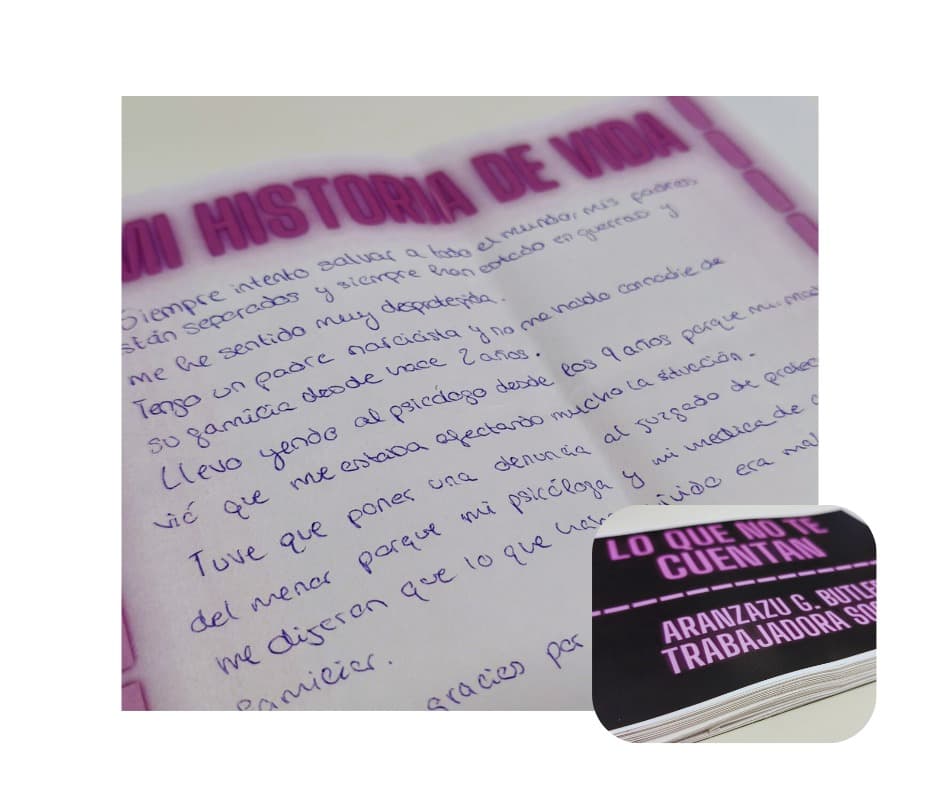 MI HISTORIA DE VIDA
Siempre intento salvar a todo el mundo, mis padres
están separados y siempre han estado en guerras y
me he sentido muy desprotegida.
Tengo un padre narcisista y no me hablo con nadie de
su familia desde hace 2 años.
Llevo yendo al psicólogo desde los 9 años porque mi mad
vió que me estaba afectando mucho la situación.
Tuve que poner una denuncia al juzgado de protec
del menor porque mi psicóloga y mi médica de c
me dijeron que lo que había vivido era mal
familiar.
gracias por
LO QUE NO TE
CUENTAN
ARANZAZU G. BUTLE
TRABAJADORA SO